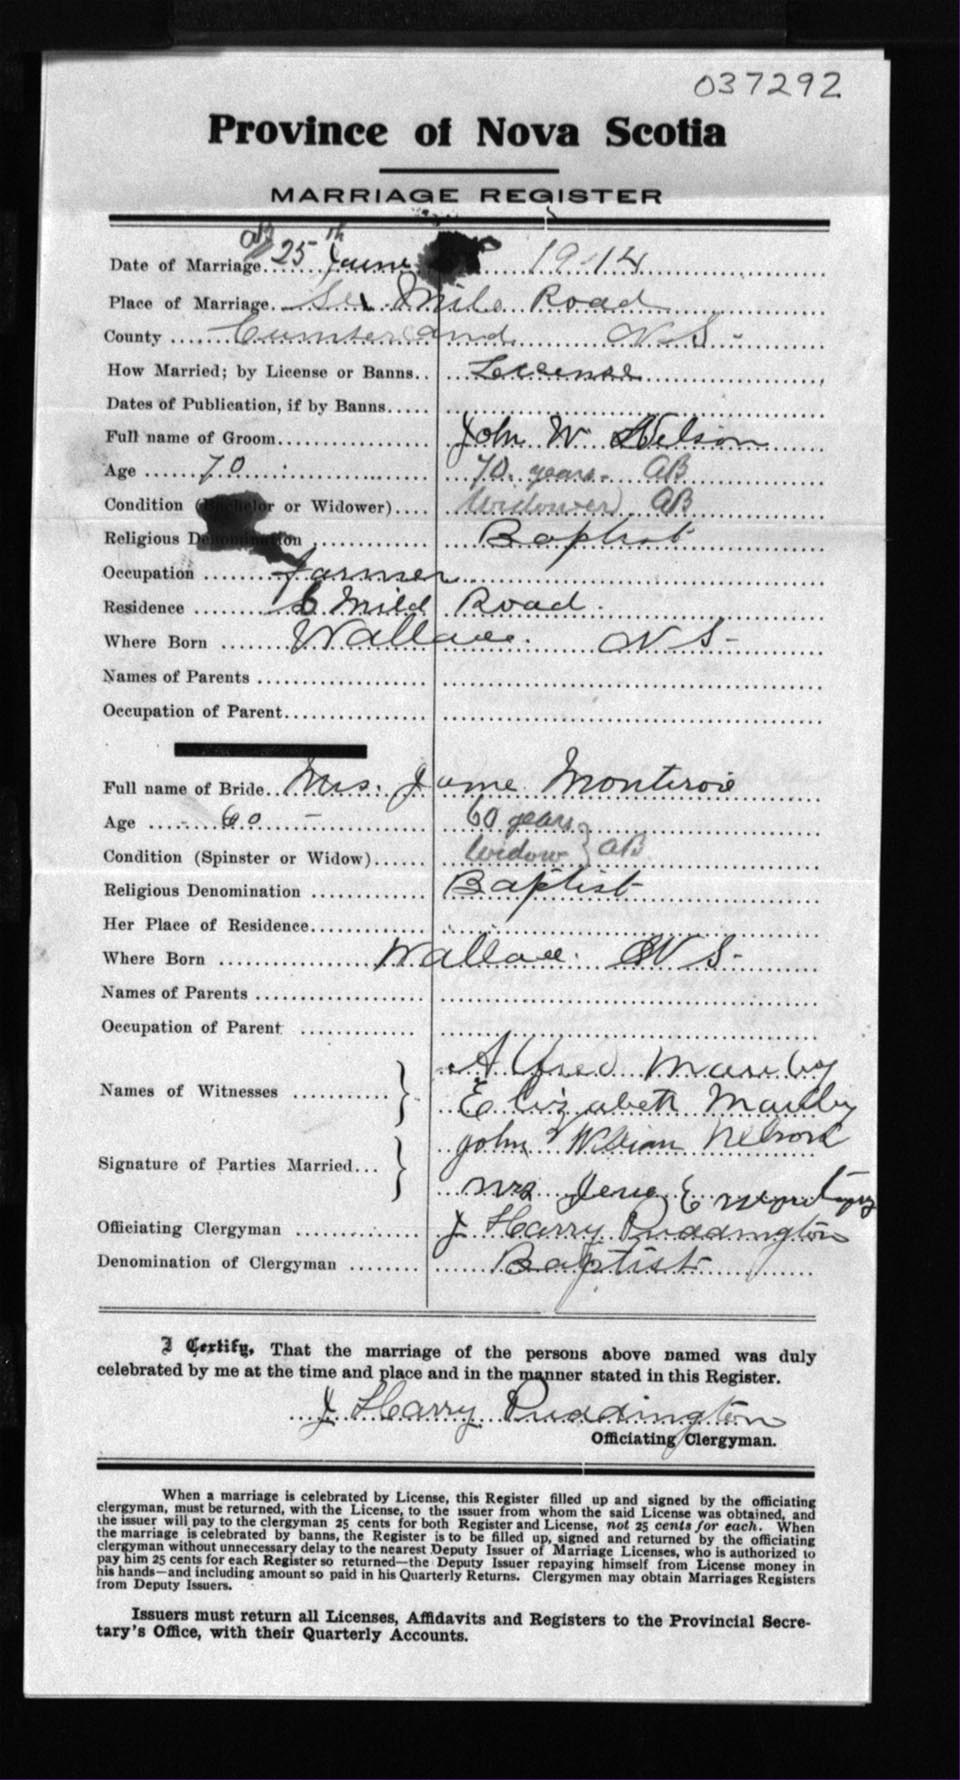 037292
Province of Nova Scotia
MARRIAGE REGISTER
AB
Date of Marriage 25th June 1914
Place of Marriage Mile Road
County Cumberland N S -
How Married; by License or Banns License
Dates of Publication, if by Banns
Full name of Groom John W Nelson
Age 70 70 years - AB
Condition (Bachelor or Widower) Widower AB
Religious Denomination Baptist
Occupation farmer
Residence 6 Mild Road.
Where Born Wallace. N S -
Names of Parents
Occupation of Parent
Full name of Bride Mrs. Jane
Age - 60 - 60 years
Condition (Spinster or Widow) Widow } AB
Religious Denomination Baptist
Her Place of Residence
Where Born Wallace. N S -
Names of Parents
Occupation of Parent
Names of Witnesses } Alfred
Elizabeth
Signature of Parties Married } John William Nelson
Mrs E
Officiating Clergyman J Harry Puddington
Denomination of Clergyman Baptist
I Certify, That the marriage of the persons above named was duly
celebrated by me at the time and place and in the manner stated in this Register.
J Harry Puddington
Officiating Clergyman.
When a marriage is celebrated by License, this Register filled up and signed by the officiating
clergyman, must be returned, with the License, to the issuer from whom the said License was obtained, and
the issuer will pay to the clergyman 25 cents for both Register and License, not 25 cents for each. When
the marriage is celebrated by banns, the Register is to be filled up, signed and returned by the officiating
clergyman without unnecessary delay to the nearest Deputy Issuer of Marriage Licenses, who is authorized to
pay him 25 cents for each Register so returned—the Deputy Issuer repaying himself from License money in
his hands—and including amount so paid in his Quarterly Returns. Clergymen may obtain Marriages Registers
from Deputy Issuers.
Issuers must return all Licenses, Affidavits and Registers to the Provincial Secre-
tary's Office, with their Quarterly Accounts.